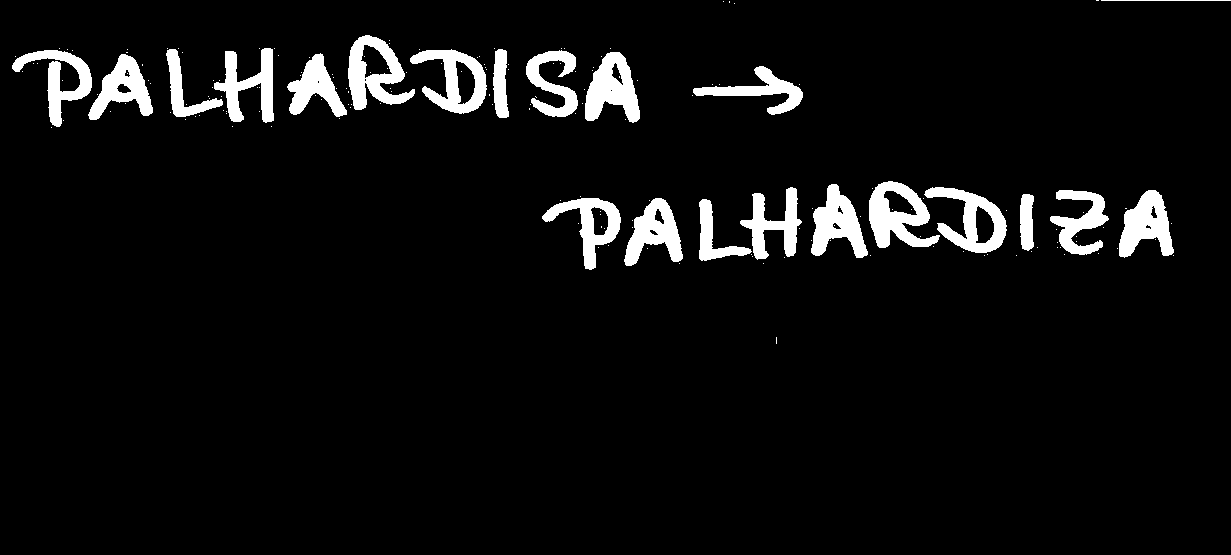 PALHARDISA →
PALHARDIZA